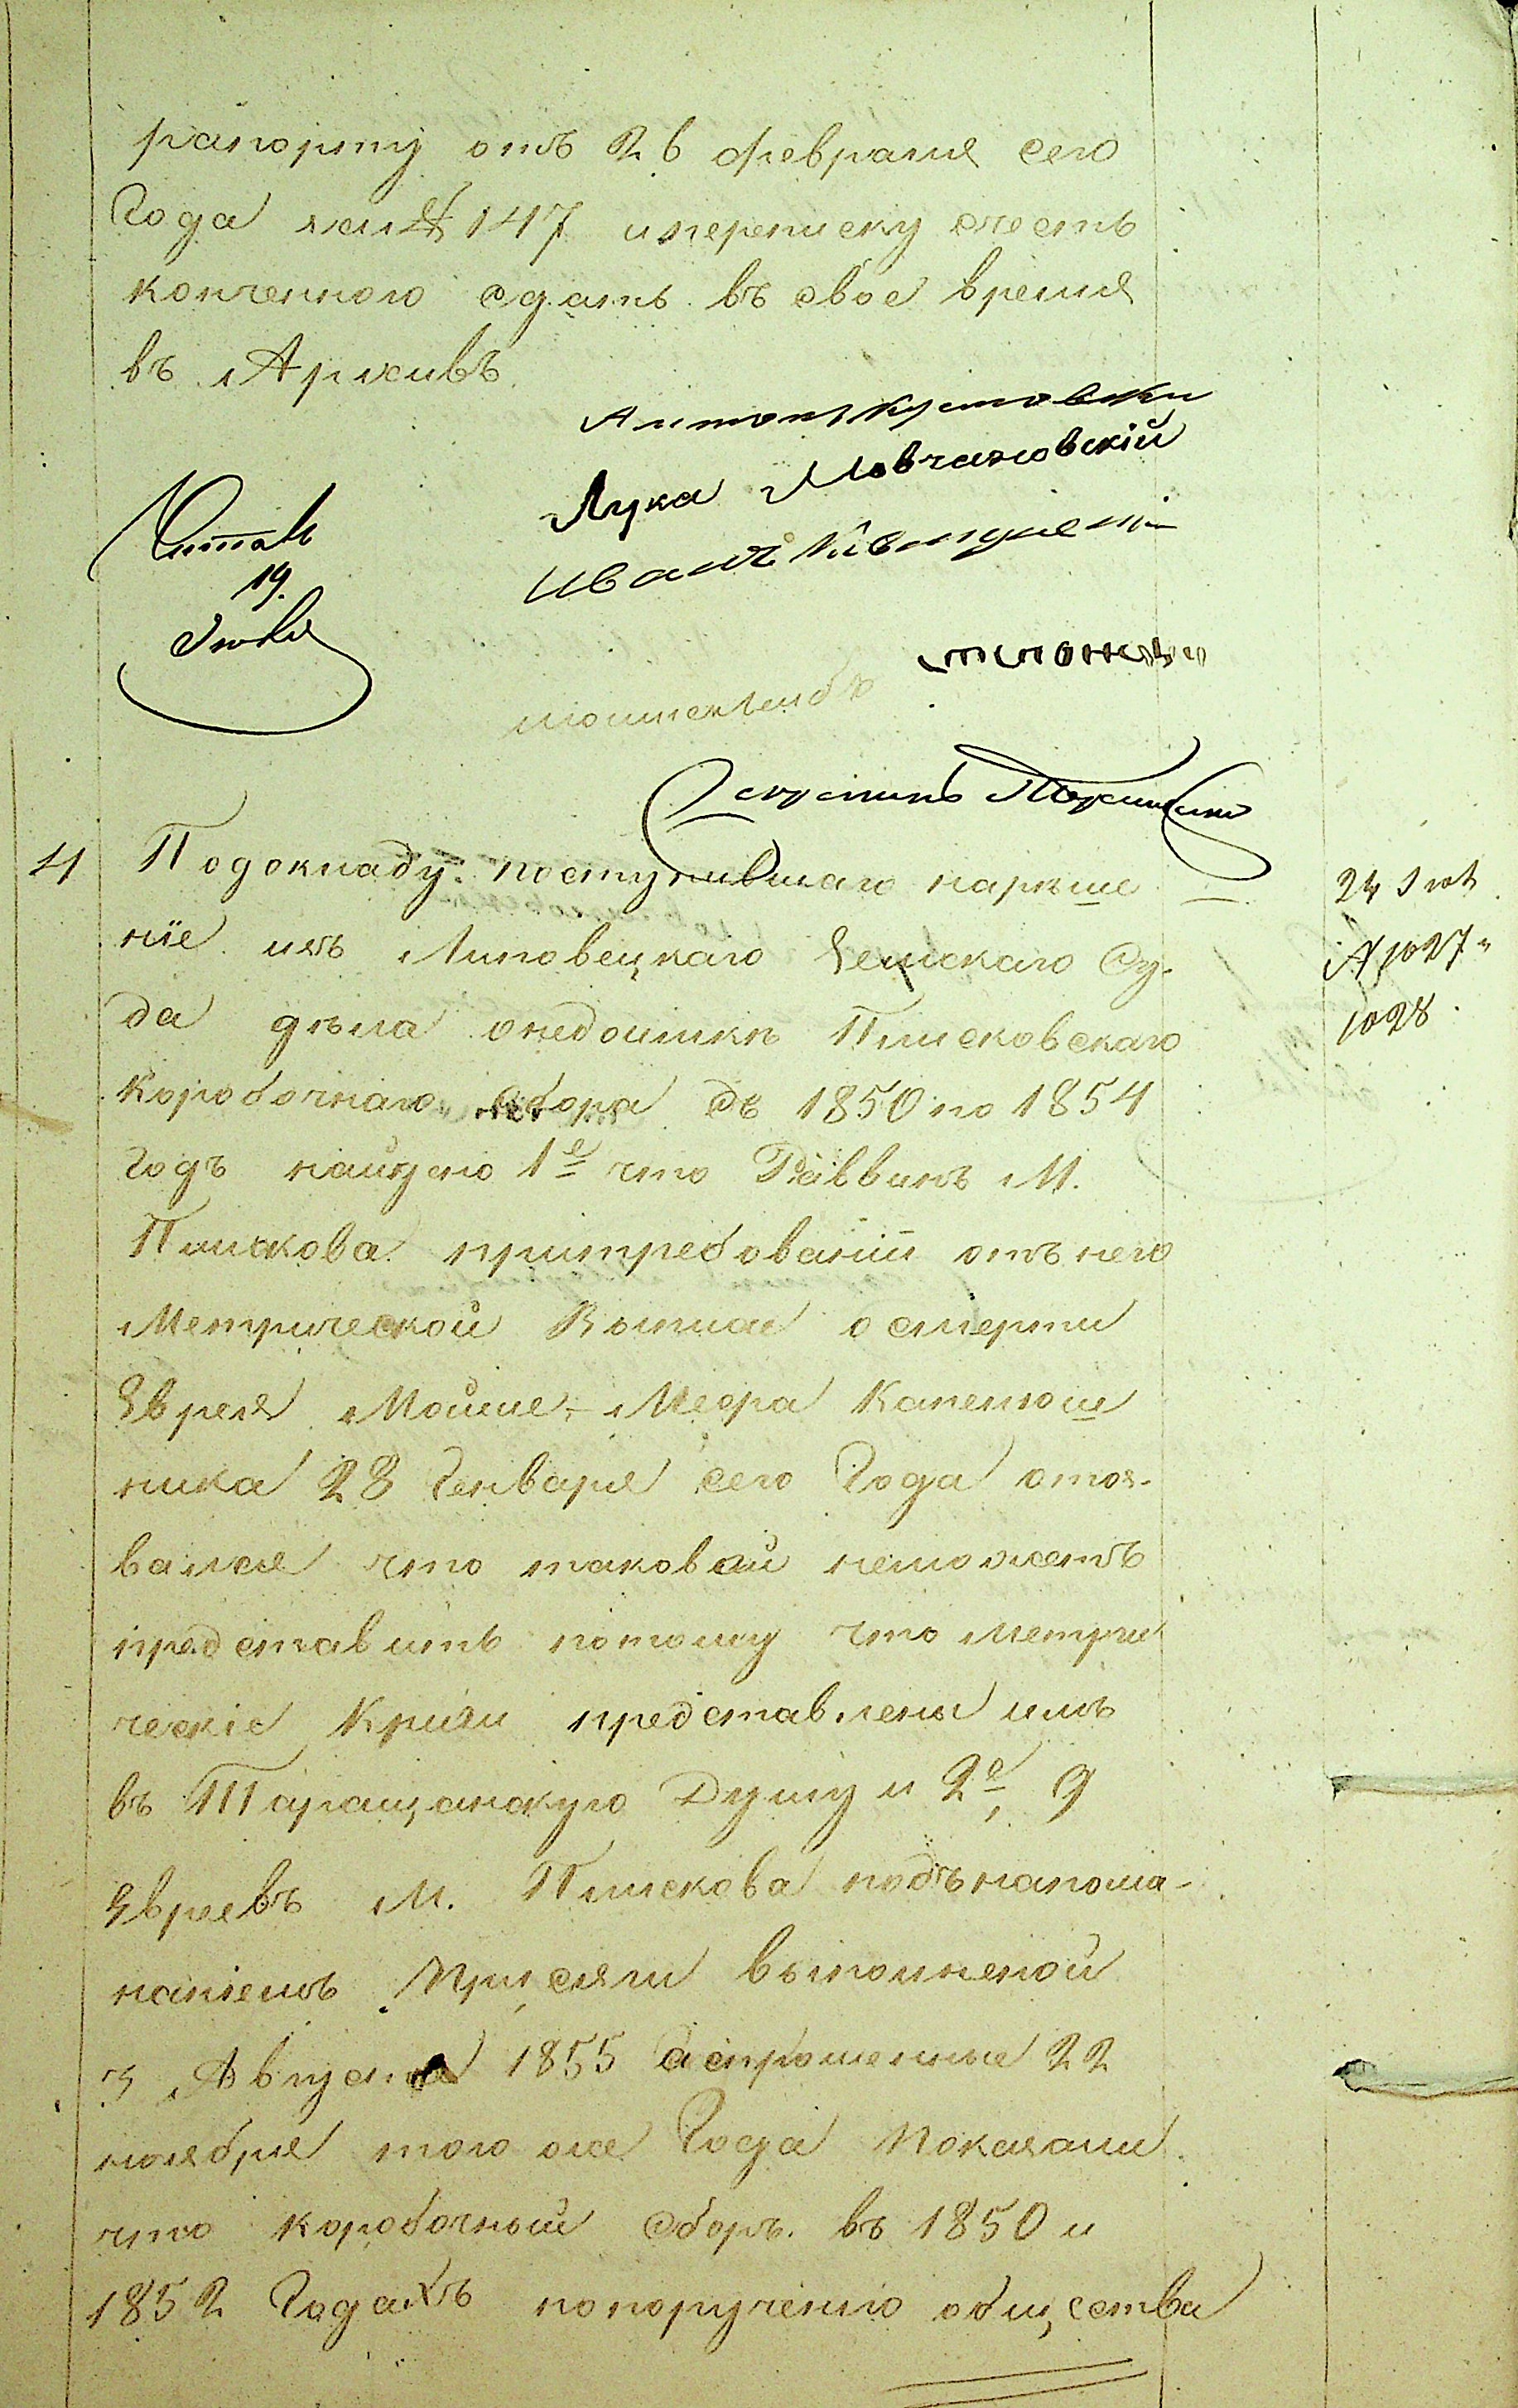 рапорту отъ 26 февраля сего
Года за № 147 ипереписку счесть
конченною сдать въ свое время
въ Архивъ
Антонъ Кустовски
Лука Мовчановскій
Иванъ
Читалъ
19.
Іюля
Секретарь
4 Подокладу поступившаго нарѣше
ніе изъ Липовецкаго Земскаго Су-
да дѣла онедоимкѣ Плисковскаго
Коробочнаго сбора съ 1850 по 1854
Годъ найдено 1е что Раввинъ М.
Плискова притребованіи отъ него
Метрической Выписи о смерти
Еврея Мойше-Меера Капелюш
ника 28 Генваря сего Года отоз-
вался что таковой неможетъ
представить потому что метри
ческіе Книги представлены имъ
въ Таращанскую Думу и 2е, 9
Евреевъ М. Плискова подъ напоми-
наніемъ Присяги выполненой
3 Августа 1855 спрошенные 22
ноября того же Года Показали
что коробочный сборъ въ 1850 и
1852 Годахъ попорученію общества
24 Іюл
№ 1027
1028